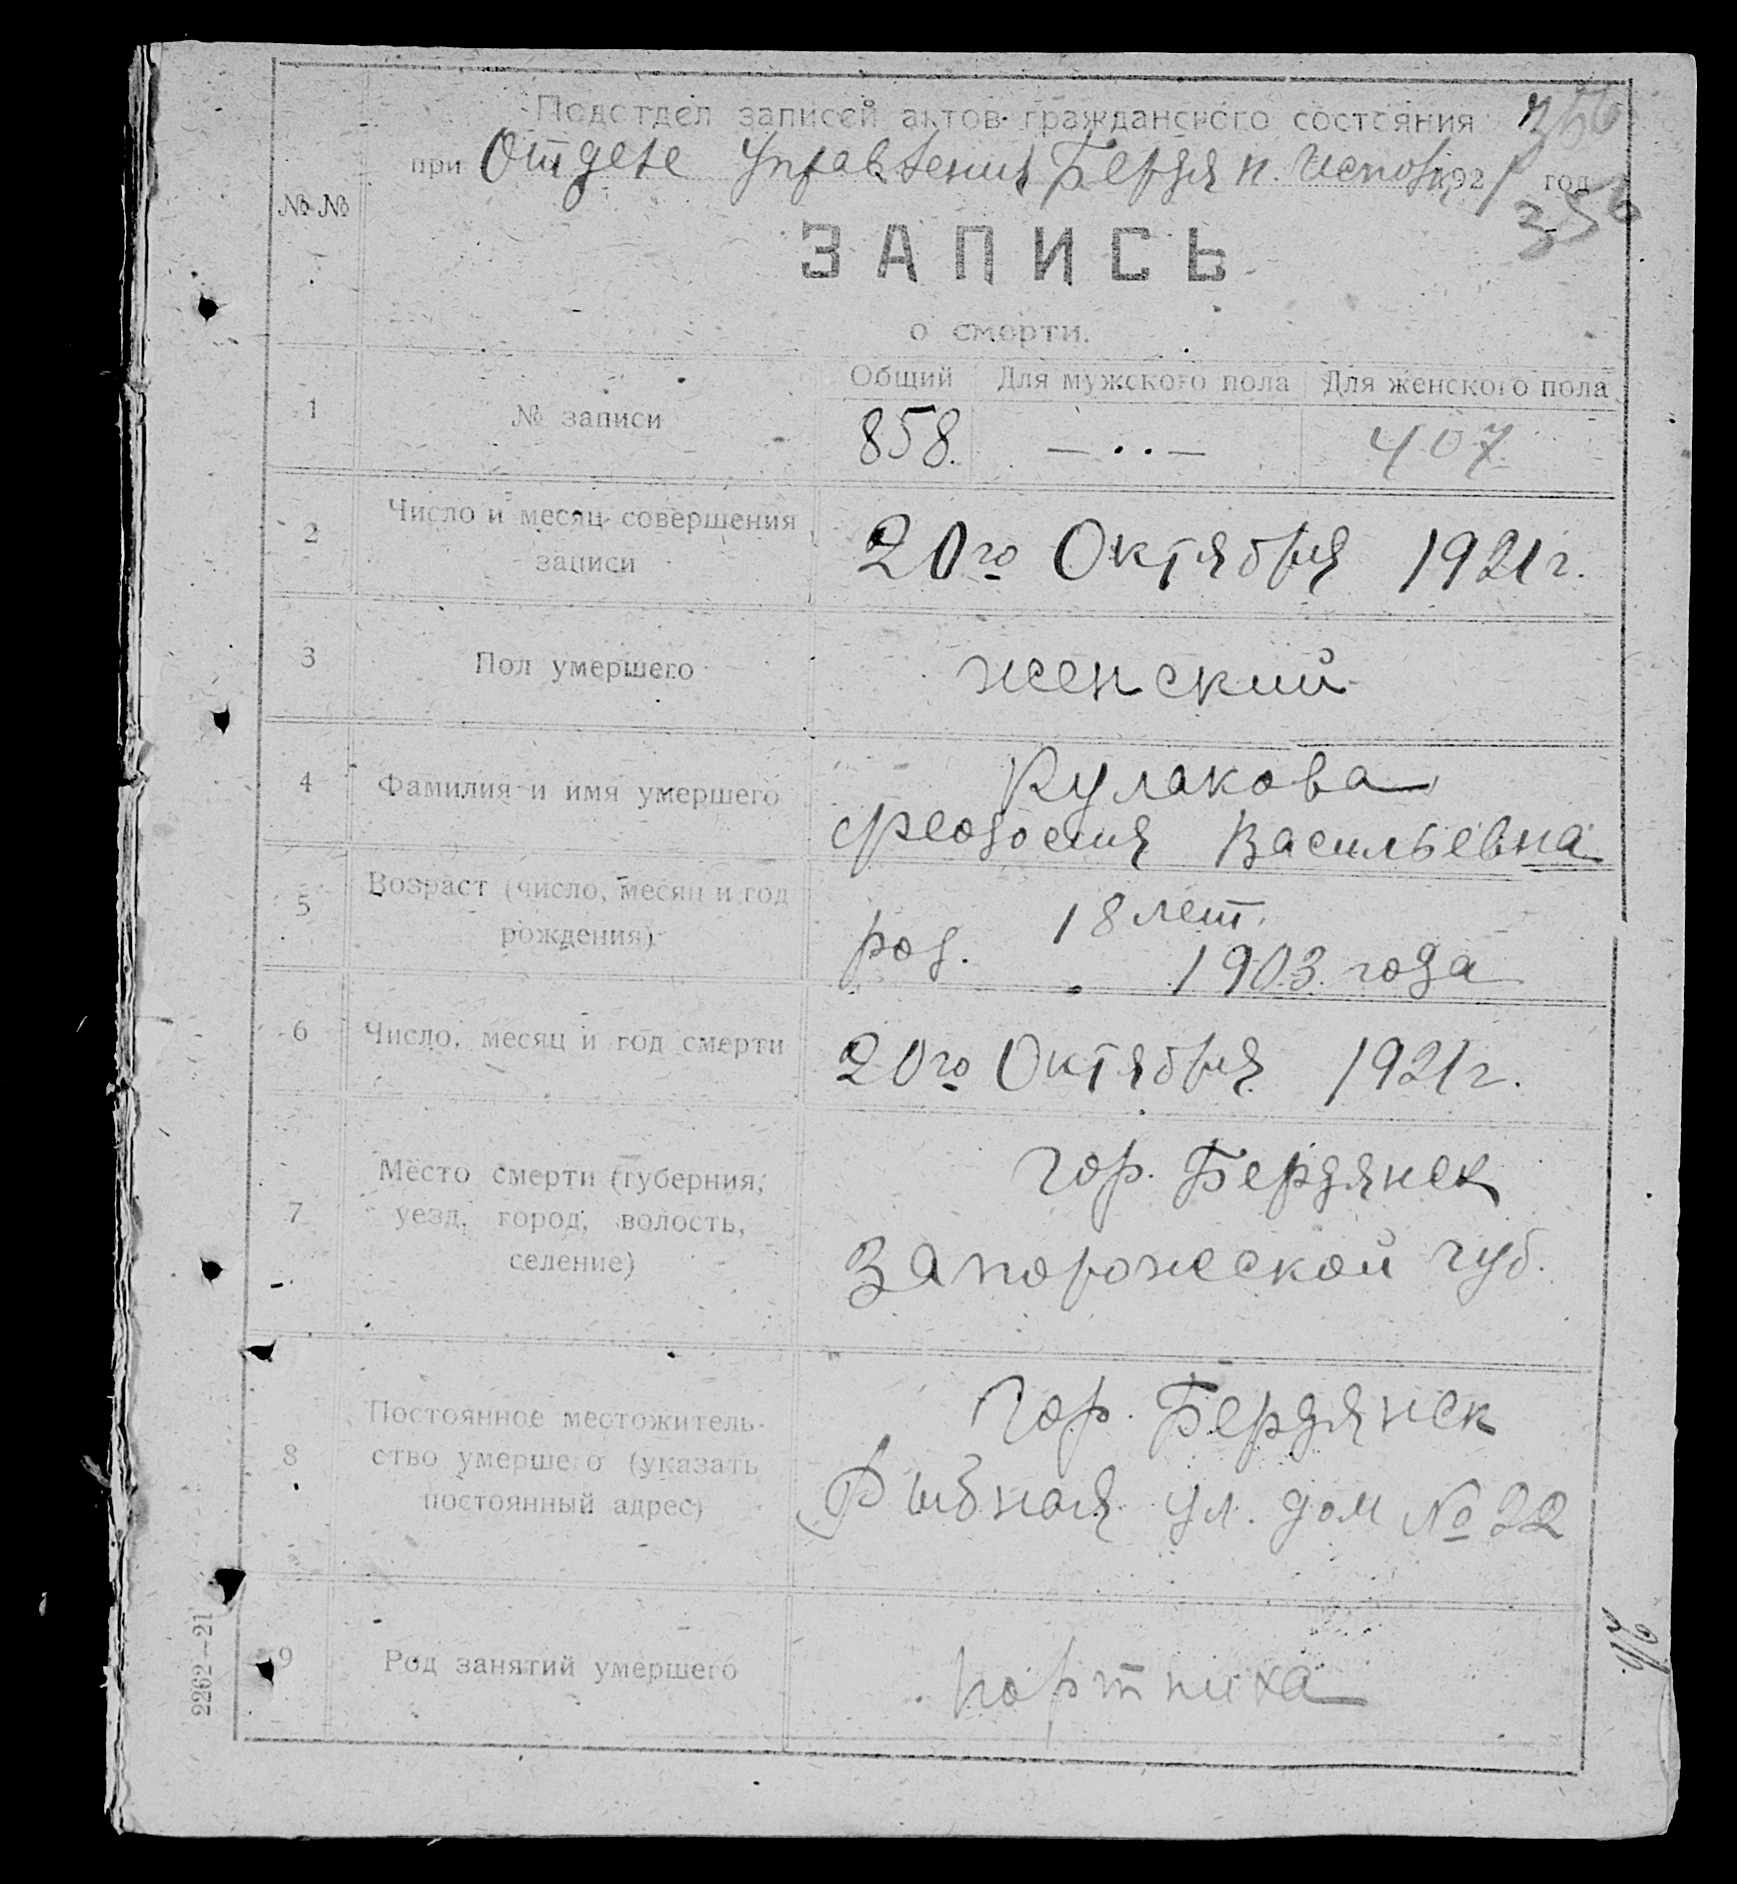 Подотдел записей актов гражданского состояния
при Отделе Управления Бердян. Исполк 1921 год
356
356
№№
ЗАПИСЬ
о смерти.
Общий Для мужского пола Для женского пола
1 № записи 858. — .. — 407
2 Число и месяц совершения
записи
20го Октября 1921 г.
3 Пол умершего женский
4 Фамилия и имя умершего Кулакова
Феодосия Васильевна
5 Возраст (число, месяц и год
рождения)
18 лет.
род. 1903 года
6 Число, месяц и год смерти 20го Октября 1921 г.
7 Место смерти (губерния,
уезд, город, волость,
селение)
гор. Бердянск
Запорожеской губ.
8 Постоянное местожитель-
ство умершего (указать
постоянный адрес)
Гор. Бердянск
Рыбная ул. дом № 22
9 Род занятий умершего портниха
2262—21